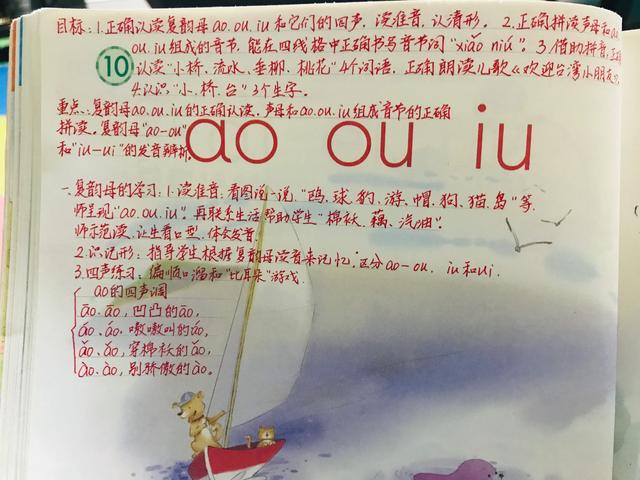 目标：1.正确认读复韵母ao、ou、iu和它们的四声，读准音，认清形。2.正确拼读声母和ao、
ou、iu组成的音节，能在四线格中正确书写音节词"xiǎo niú"。3.借助拼音，正确
认读"小桥、流水、垂柳、桃花"4个词语，正确朗读儿歌《欢迎台湾小朋友》
4.认识"小、桥、台"3个生字。
10
重点：复韵母ao、ou、iu的正确认读，声母和ao、ou、iu组成音节的正确
拼读。复韵母"ao-ou"
和"iu-ui"的发音辨析。
ao ou iu
一、复韵母的学习：1.读准音：看图说一说，"鸥、球、豹、游、帽、狗、猫、岛"等，
师呈现"ao、ou、iu"，再联系生活帮助学生"棉袄、藕、汽油"。
师示范读，让生看口型，体会发音
2.识记形：指导学生根据复韵母读音来记忆，区分ao-ou、iu和ui.
3.四声练习：编顺口溜和"比耳朵"游戏.
ao的四声调
āo、āo，凹凸的āo，
áo、áo，嗷嗷叫的áo，
ǎo、ǎo，穿棉袄的ǎo，
ào、ào，别骄傲的ào。